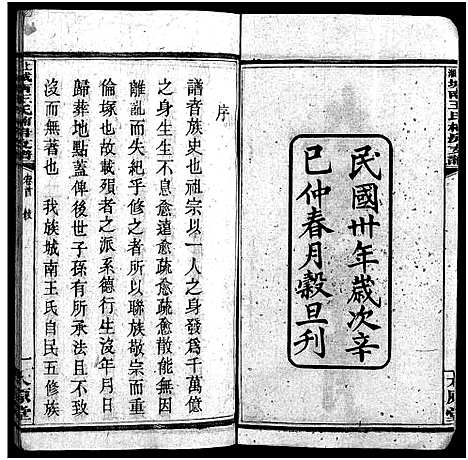 民國卅年歲次辛
巳仲春月穀旦刊
太原堂
序
譜者族史也祖宗以一人之身發爲千萬億
之身生生不息愈遠愈疏愈疏愈散能無因
離亂而失紀乎修之者所以聯族敬宗而重
倫塚也故載殞者之派系德行生沒年月日
歸葬地點蓋俾後世子孫有所承法且不致
沒而無著也　我族城南王氏自民五修族
卷首 序
一 太原堂